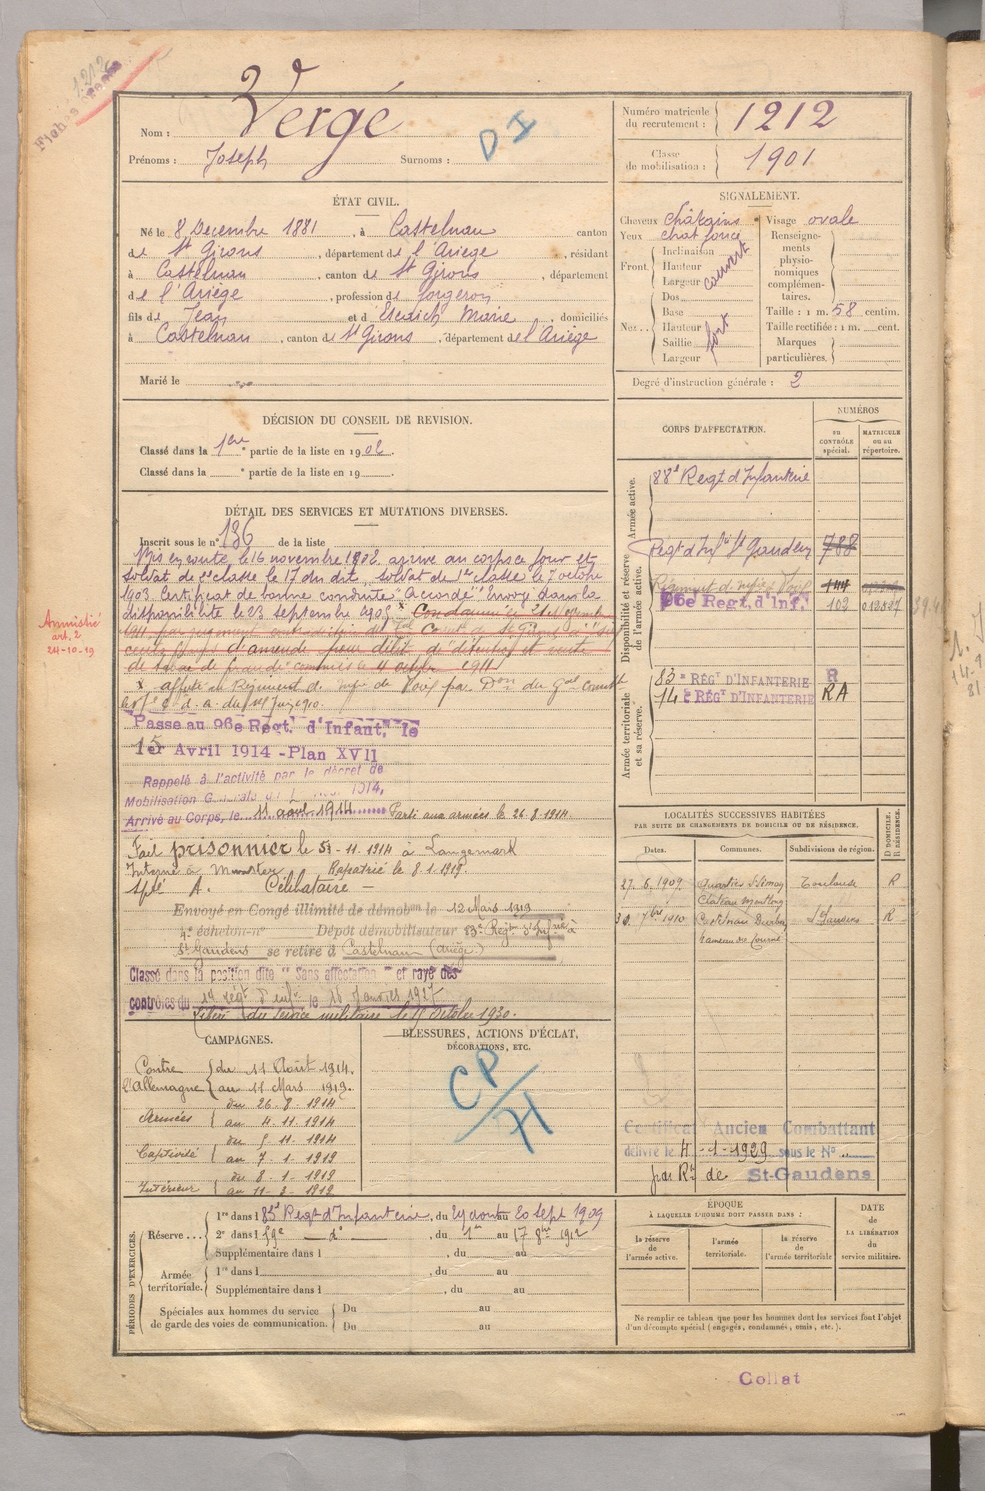 1212
Nom : Vergé
D I
Prénoms : Joseph Surnoms :
Numéro matricule du recrutement : 1212
Classe de mobilisation : 1901
ÉTAT CIVIL.
Né le 8 Décembre 1881, à Castelnau canton
de St Girons, département de l'Ariège, résidant
à Castelnau, canton de St Girons, département
de l'Ariège, profession de forgeron
fils de Jean et d' Marie, domiciliés
à Castelnau, canton de St Girons, département de l'Ariège
Marié le
SIGNALEMENT.
Cheveux châtains
Yeux chat foncé
Front. Inclinaison
Hauteur
Largeur
couvert
Nez.. Dos
Base
Hauteur
Saillie
Largeur
fort
Visage ovale
Renseigne-
ments
physio-
nomiques
complémen-
taires.
Taille : 1 m. 58 centim.
Taille rectifiée : 1 m. cent.
Marques
particulières.
Degré d'instruction générale : 2
DÉCISION DU CONSEIL DE REVISION.
Classé dans la 1ère partie de la liste en 1902.
Classé dans la e partie de la liste en 19 .
DÉTAIL DES SERVICES ET MUTATIONS DIVERSES.
Inscrit sous le n° 136 de la liste
Mis en route le 16 novembre 1902, arrivé au corps ce jour et
soldat de 2e classe le 17 du dit, soldat de 1re classe le 7 octobre
1903. Certificat de bonne conduite "Accordé" Envoyé dans la
disponibilité le 23 septembre 1905 x Condamné le
1911 par jugement contradictoire du Tal Correct de St Girons à
cents francs d'amende pour délit de détention et vente
de tabac de fraude commis le 4 octobre 1911
Amnistié
art. 2
24-10-19
x affecté au Régiment d'infie de Foix par Don du Gal Comdt
Passe au 96e Régt. d'Infant. le
15 Avril 1914 - Plan XVII
Rappelé à l'activité par le décret de
Mobilisation Générale du 1 Août 1914,
Arrivé au Corps, le 11 août 1914 Parti aux armées le 26.8.1914
Fait prisonnier le 5-11-1914 à Langemark
Interné à Munster Rapatrié le 8.1.1919.
A. Célibataire -
Envoyé en Congé illimité de démobon le 12 Mars 1919
4e échelon-n° Dépôt démobilisateur 83e Régim d'Infrie à
St Gaudens se retire à Castelnau (Ariège)
Classé dans la position dite "Sans affectation" et rayé des
contrôles du 14 régt d'infie le 15 Janvier 1927
Libéré du service militaire le 15 Octobre 1930.
CORPS D'AFFECTATION.
NUMÉROS
au
CONTRÔLE
spécial.
MATRICULE
ou au
répertoire.
Armée active.
88e Régt d'Infanterie
Disponibilité et réserve
de l'armée active.
Régt d'Infie St Gaudens 788
Régiment d'infie Foix 144
96e Regt. d'Inf. 102 012827
Armée territoriale
et sa réserve.
83e RÉGT D'INFANTERIE R
14e RÉGT D'INFANTERIE RA
LOCALITÉS SUCCESSIVES HABITÉES
PAR SUITE DE CHANGEMENTS DE DOMICILE OU DE RÉSIDENCE.
Dates. Communes. Subdivisions de région.
D DOMICILE.
R RÉSIDENCE.
27.6.1909 Quartier St Simon Toulouse R
Château Montlong
30 7bre 1910 Castelnau Durban St Gaudens R
hameau de
Certificat Ancien Combattant
délivré le 4-1-1929 sous le N°
par Rt de St-Gaudens
CAMPAGNES.
Contre l'Allemagne du 11 Août 1914.
au 11 Mars 1919.
Armées du 26-8-1914
au 4-11-1914
Captivité du 5-11-1914
au 7-1-1919
Intérieur du 8-1-1919
au 11-3-1919
BLESSURES, ACTIONS D'ÉCLAT,
DÉCORATIONS, ETC.
CP/H
PÉRIODES D'EXERCICES.
Réserve... 1re dans l 83e Régt d'Infanterie, du 24 août au 20 sept 1909
2e dans l 59e do, du 1er au 17 8bre 1912
Supplémentaire dans l , du au
Armée territoriale. 1re dans l , du au
Supplémentaire dans l , du au
Spéciales aux hommes du service
de garde des voies de communication. Du au
Du au
ÉPOQUE
À LAQUELLE L'HOMME DOIT PASSER DANS :
la réserve
de
l'armée active.
l'armée
territoriale.
la réserve
de
l'armée territoriale
DATE
de
LA LIBÉRATION
du
service militaire.
Ne remplir ce tableau que pour les hommes dont les services font l'objet
d'un décompte spécial (engagés, condamnés, omis, etc.).
Collat